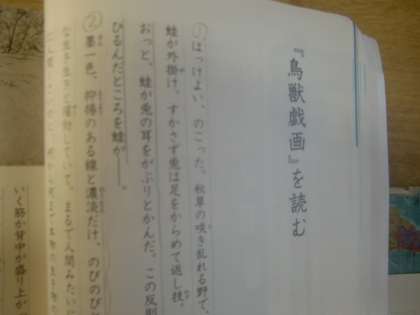 『鳥獣戯画』を読む
①はっけよい、のこった。秋草の咲き乱れる野で、
蛙が外掛け、すかさず兎は足をからめて返し技。
おっと、蛙が兎の耳をがぶりとかんだ。この反則
びるんだところを蛙が――。
②墨一色、抑揚のある線と濃淡だけ、のびのび
まるで人間みたいに
いく筋か背中が盛り上が